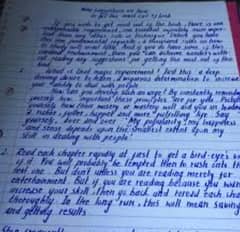 Nine suggestions on how
to get the most out of this book
If you wish to get most out of this book, there is one
indispensable requirement, one essential infinitely more impor-
tant than any rules or technique. Unless you have
this one fundamental requisite, a thousand rules on how
to study will avail little. And if you do have this
endowment, then you can achieve wonders with-
out reading any suggestions for getting the most out of this
book.
What is that magic requirement? Just this: a deep
driving desire to learn, a vigorous determination to increase
your ability to deal with people
How can you develop such an urge? By constantly reminding
yourself how important these principles are for you. Picture
yourself how their mastery will aid you in leading
a richer, fuller, happier and more fulfilling life. Say
yourself over and over "My popularity, my happiness
and sense depends upon the smallest extent upon my
skill in dealing with people"
2. Read each chapter rapidly at first to get a bird's-eye
of it. You will probably be tempted then to rush into the
next one. But don't unless you are reading merely for
entertainment. But if you are reading because you want
increase your skill then go back and reread each chapter
thoroughly. In the long run, this will mean saving
and getting results.